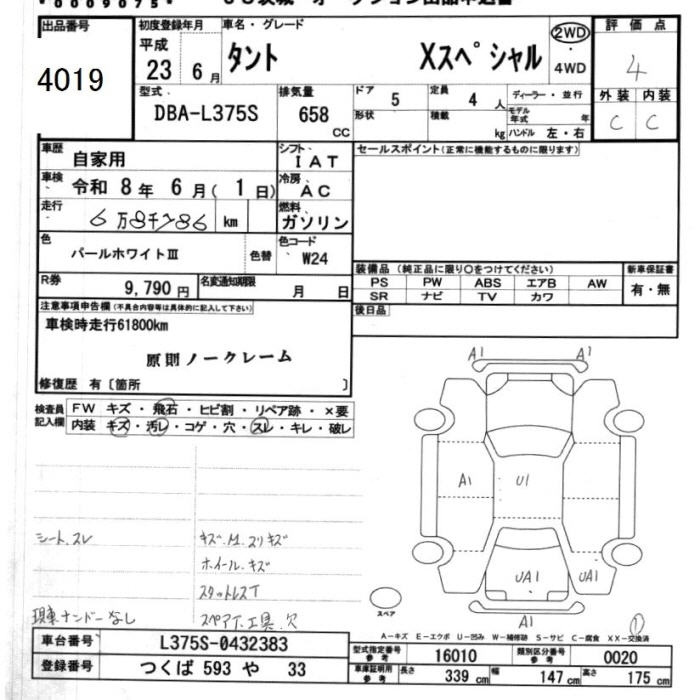 0009075
出品番号
4019
初度登録年月
平成 23年 6月
車名・グレード
タント Xスペシャル
2WD
・
4WD
評価点
4
型式
DBA-L375S
排気量
658 CC
ドア 5
形状
定員 4 人
積載 kg
ディーラー・並行
モデル年式 年
ハンドル 左・右
外装 内装
C C
車歴 自家用
シフト IAT
セールスポイント(正常に機能するものに限ります)
車検 令和 8年 6月( 1日)
冷房 AC
走行 6万8千286 km
燃料 ガソリン
色 パールホワイトⅢ 色替
色コード W24
R券 9,790円
名変通知期限 月 日
装備品(純正品に限り○をつけてください) 新車保証書
PS PW ABS エアB AW 有・無
SR ナビ TV カワ
後日品
注意事項申告欄(不具合内容等は具体的に記入して下さい)
車検時走行61800km
原則ノークレーム
修復歴 有〔箇所 〕
検査員記入欄
FW キズ・飛石・ヒビ割・リペア跡・×要
内装 キズ・汚レ・コゲ・穴・スレ・キレ・破レ
A1 A1
A1 U1
UA1 UA1
A1
シート.スレ
キズ.M.スリキズ
ホイール.キズ
スタットレスT
現車ナンバーなし
スペアT.工具.欠
スペア
①
A-キズ E-エクボ U-凹み W-補修跡 S-サビ C-腐食 XX-交換済
車台番号 L375S-0432383
登録番号 つくば 593 や 33
型式指定番号 参考 16010
類別区分番号 参考 0020
車庫証明用 参考 長さ 339 cm 幅 147 cm 高さ 175 cm